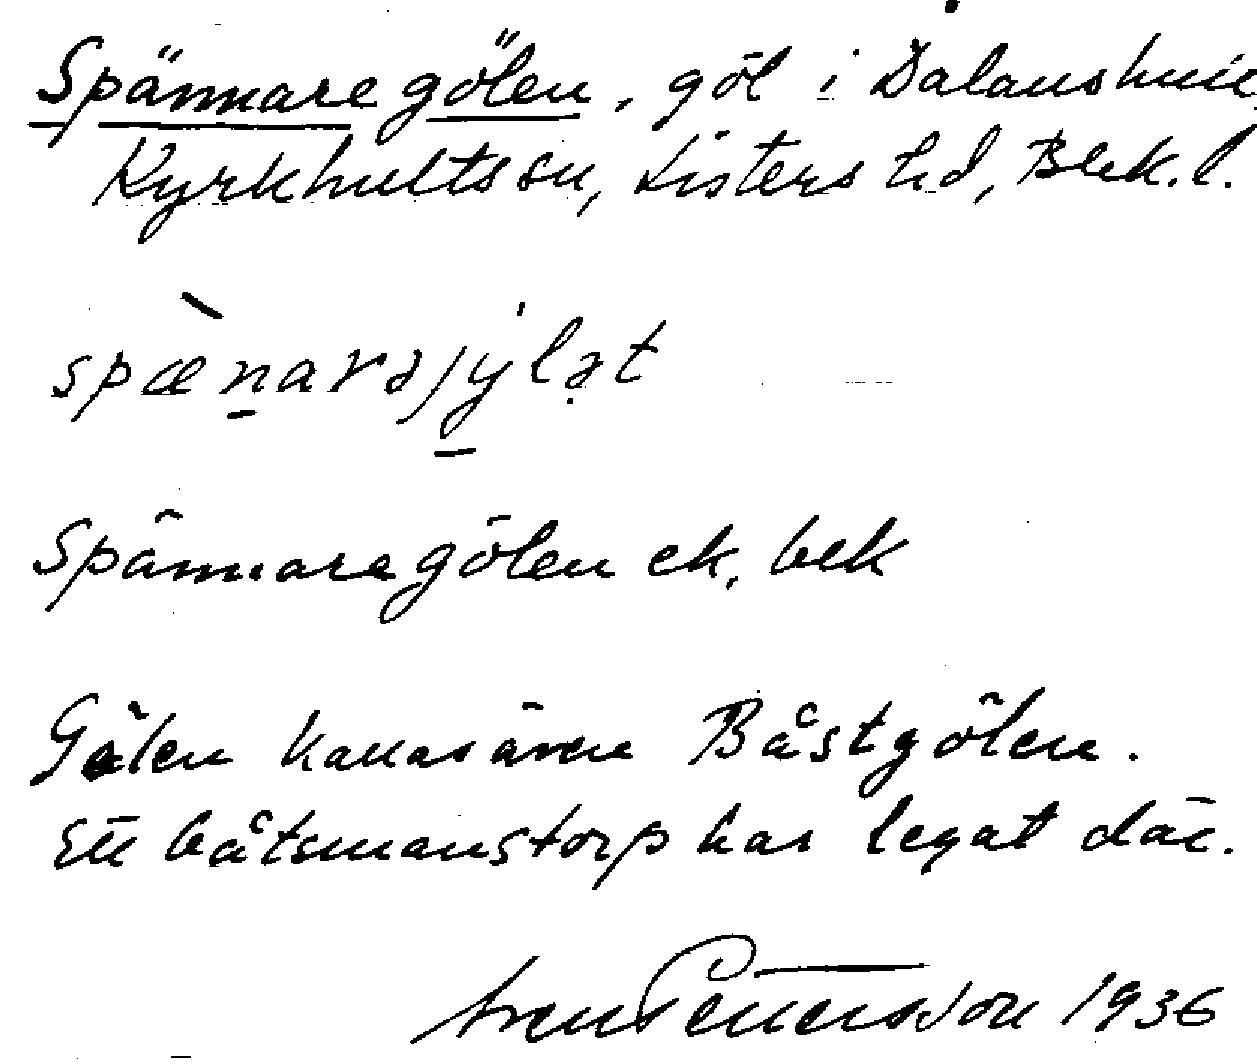 Spännaregölen, göl i Dalanshult
Kyrkhults sn, Listers hd, Blek. l.
spæ̀n̠arəjý̠lət
Spännaregölen ek. bek
Gölen kallas även Båstgölen.
Ett båtsmanstorp har legat där.
Sven Pettersson 1936